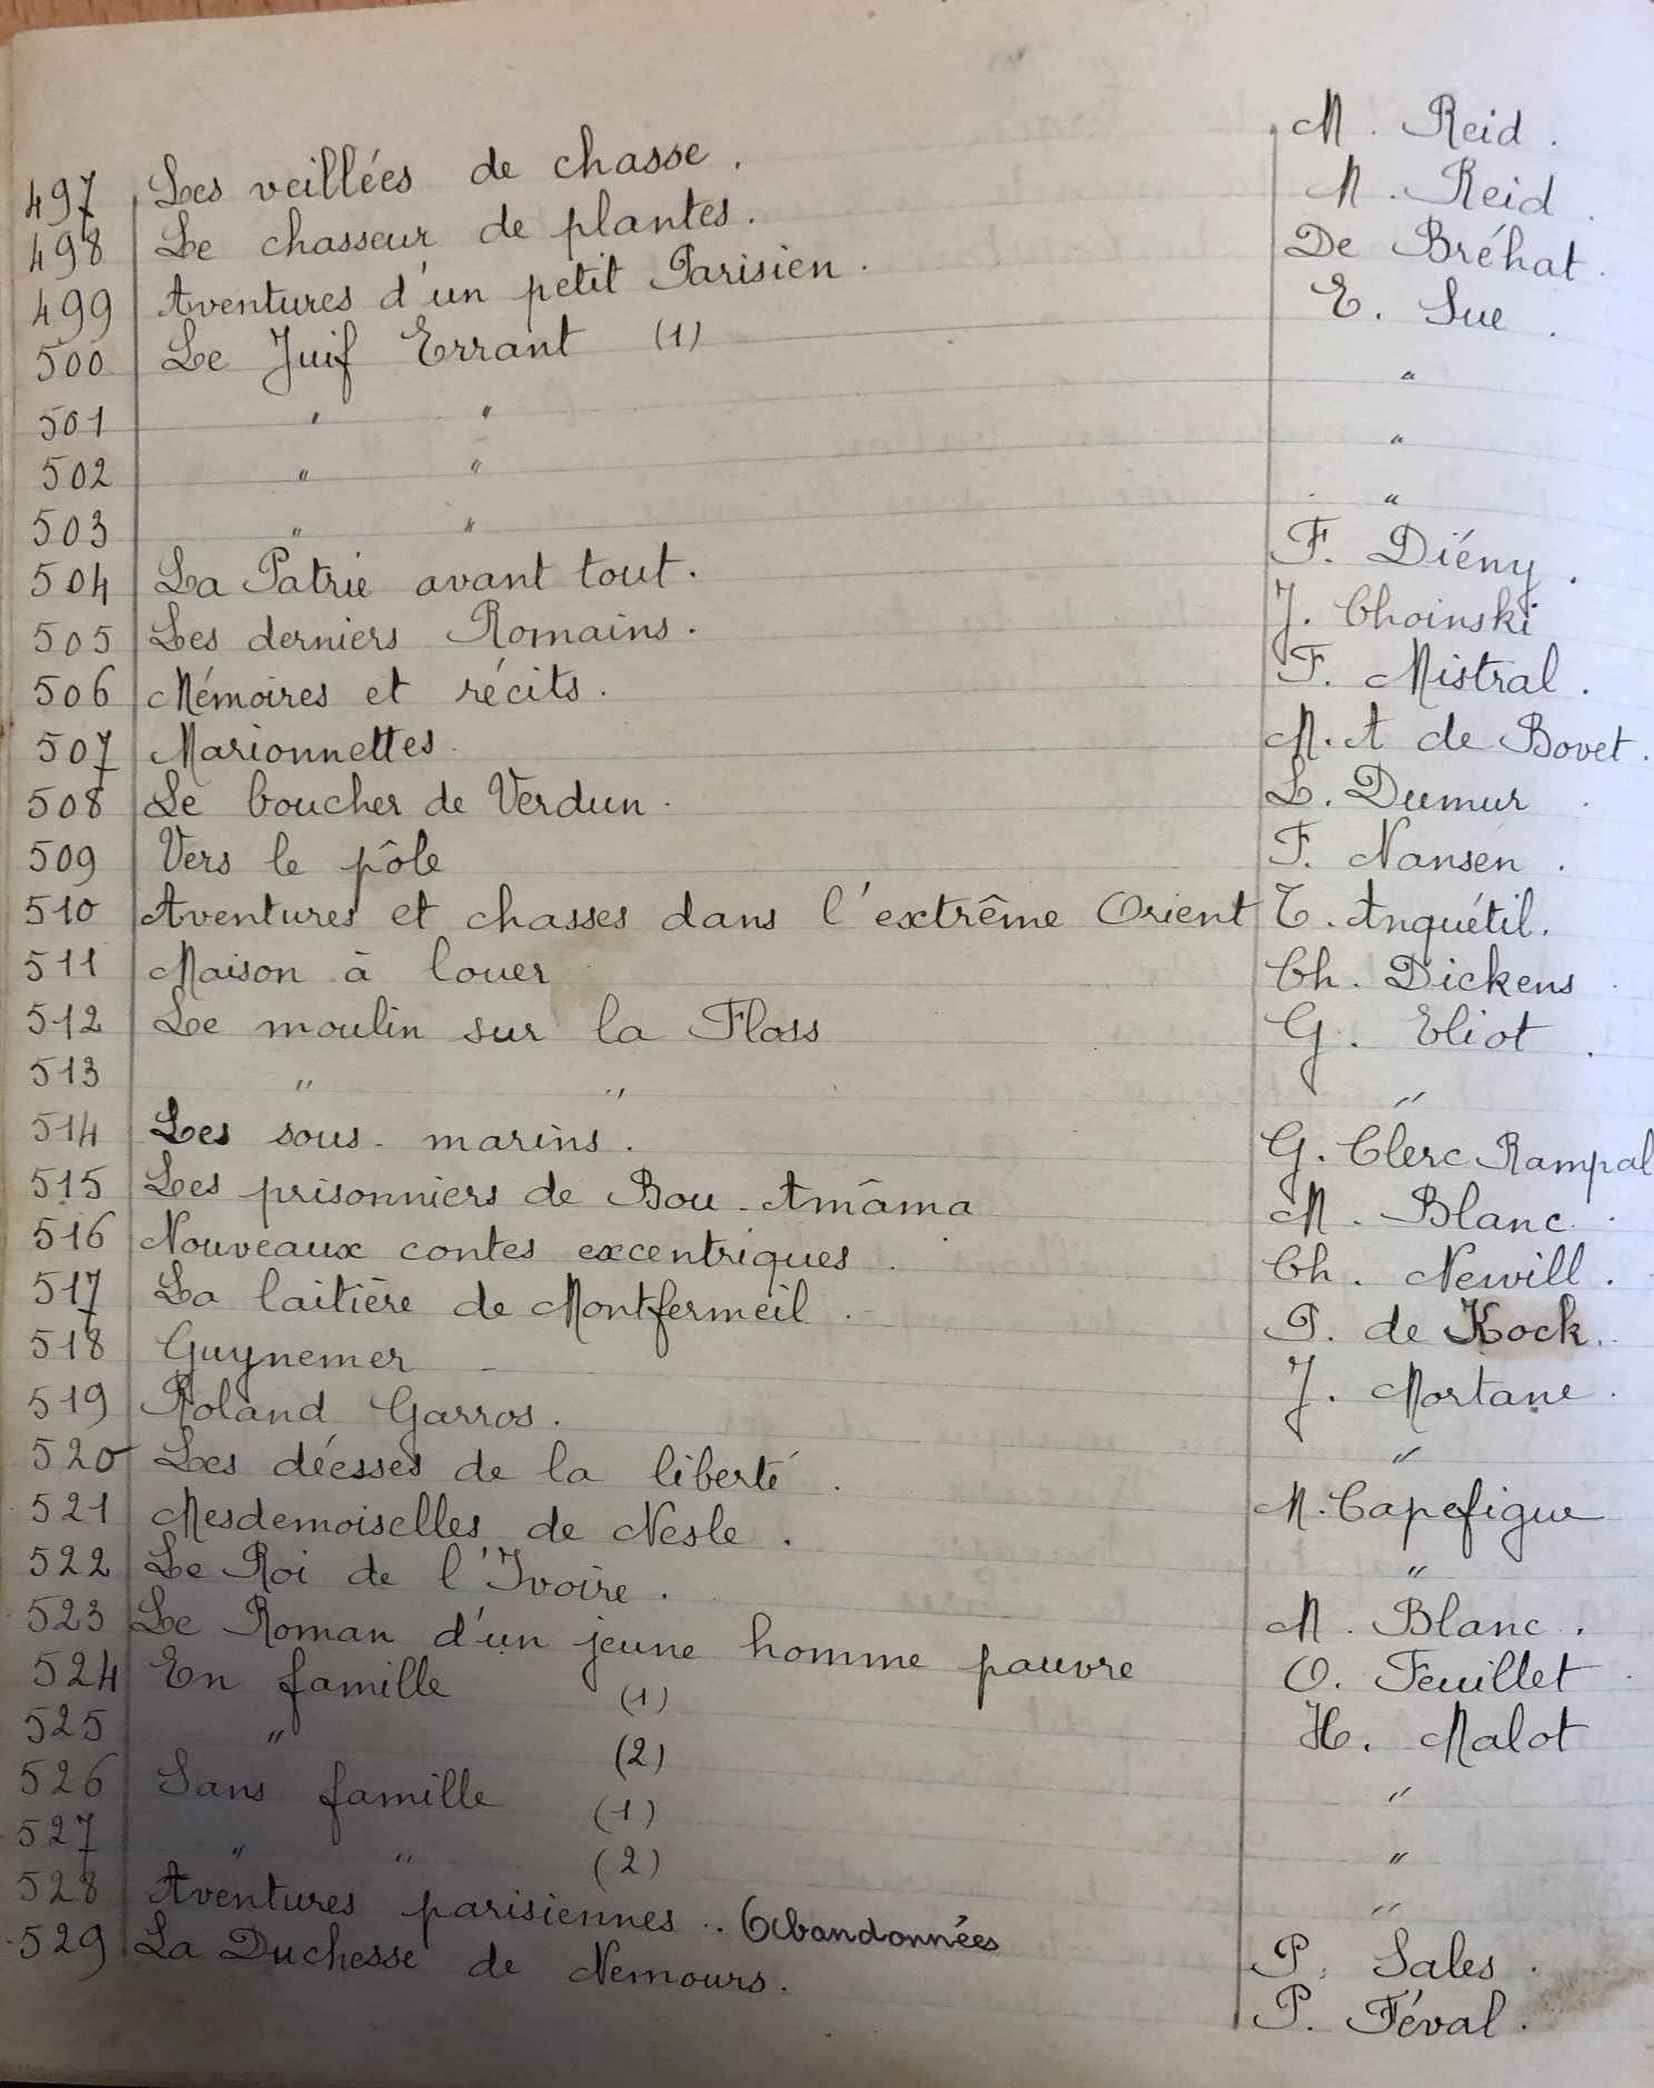 497 Les veillées de chasse. M. Reid.
498 Le chasseur de plantes. M. Reid.
499 Aventures d'un petit Parisien. De Bréhat.
500 Le Juif Errant (1) E. Sue.
501 " " "
502 " " "
503 " " "
504 La Patrie avant tout. F. Diény.
505 Les derniers Romains. J. Choinski
506 Mémoires et récits. F. Mistral.
507 Marionnettes. M. A de Bovet.
508 Le boucher de Verdun. L. Dumur.
509 Vers le pôle F. Nansen.
510 Aventures et chasses dans l'extrême Orient T. Anquétil.
511 Maison à louer Ch. Dickens.
512 Le moulin sur la Floss G. Eliot.
513 " " "
514 Les sous-marins. G. Clerc Rampal
515 Les prisonniers de Bou-Amâma M. Blanc.
516 Nouveaux contes excentriques. Ch. Newill.
517 La laitière de Montfermeil. P. de Kock.
518 Guynemer J. Mortane.
519 Roland Garros. "
520 Les déesses de la liberté. M. Capefigue
521 Mesdemoiselles de Nesle. "
522 Le Roi de l'Ivoire. M. Blanc.
523 Le Roman d'un jeune homme pauvre O. Feuillet.
524 En famille (1) H. Malot
525 " (2) "
526 Sans famille (1) "
527 " " (2) "
528 Aventures parisiennes.. Abandonnées P. Sales.
529 La Duchesse de Nemours. P. Féval.